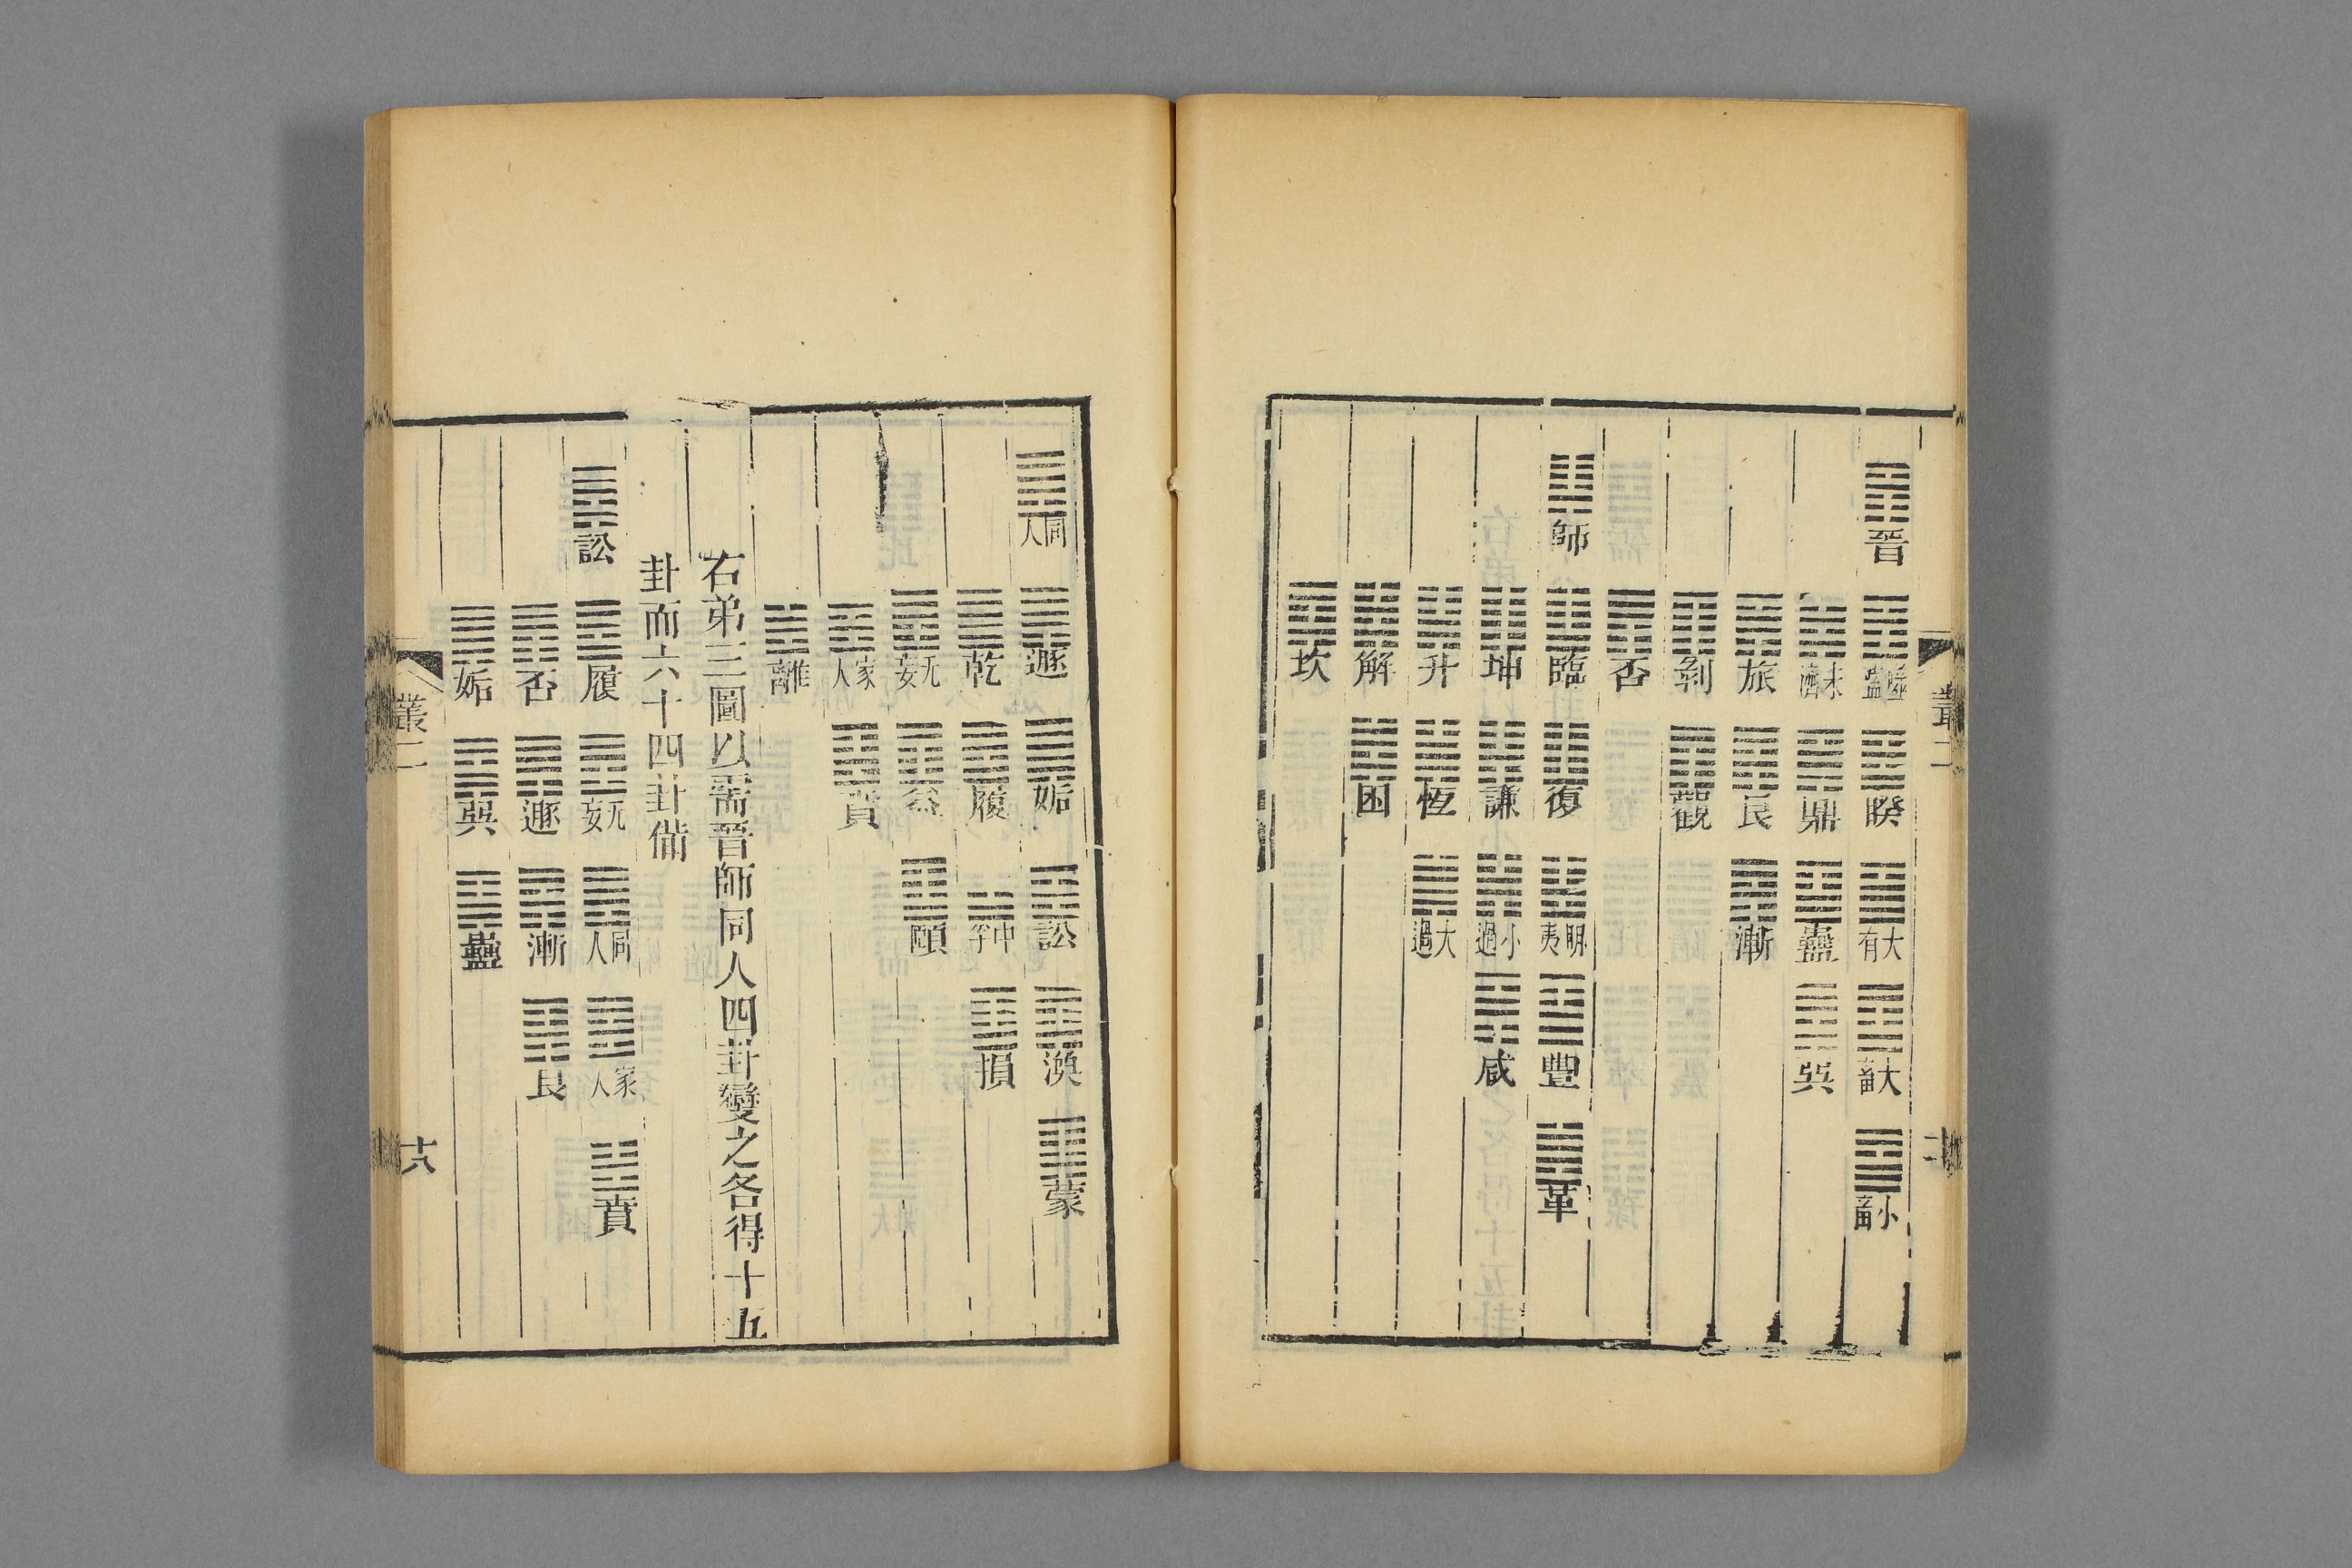 晉 噬嗑 睽 大有 大畜 小畜
未濟 鼎 蠱 巽
旅 艮 漸
剝 觀
否
師 臨 復 明夷 豐 革
坤 謙 小過 咸
升 恆 大過
解 困
坎
同人 遯 姤 訟 渙 蒙
乾 履 中孚 損
无妄 益 頤
家人 賁
離
右弟三圖以需晉師同人四卦變之各得十五
卦而六十四卦備
訟 履 无妄 同人 家人 賁
否 遯 漸 艮
姤 巽 蠱
叢二